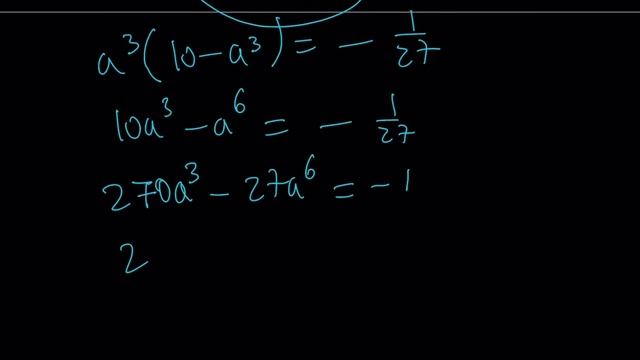 a³(10-a³) = - 1/27
10a³ - a⁶ = - 1/27
270a³ - 27a⁶ = -1
2